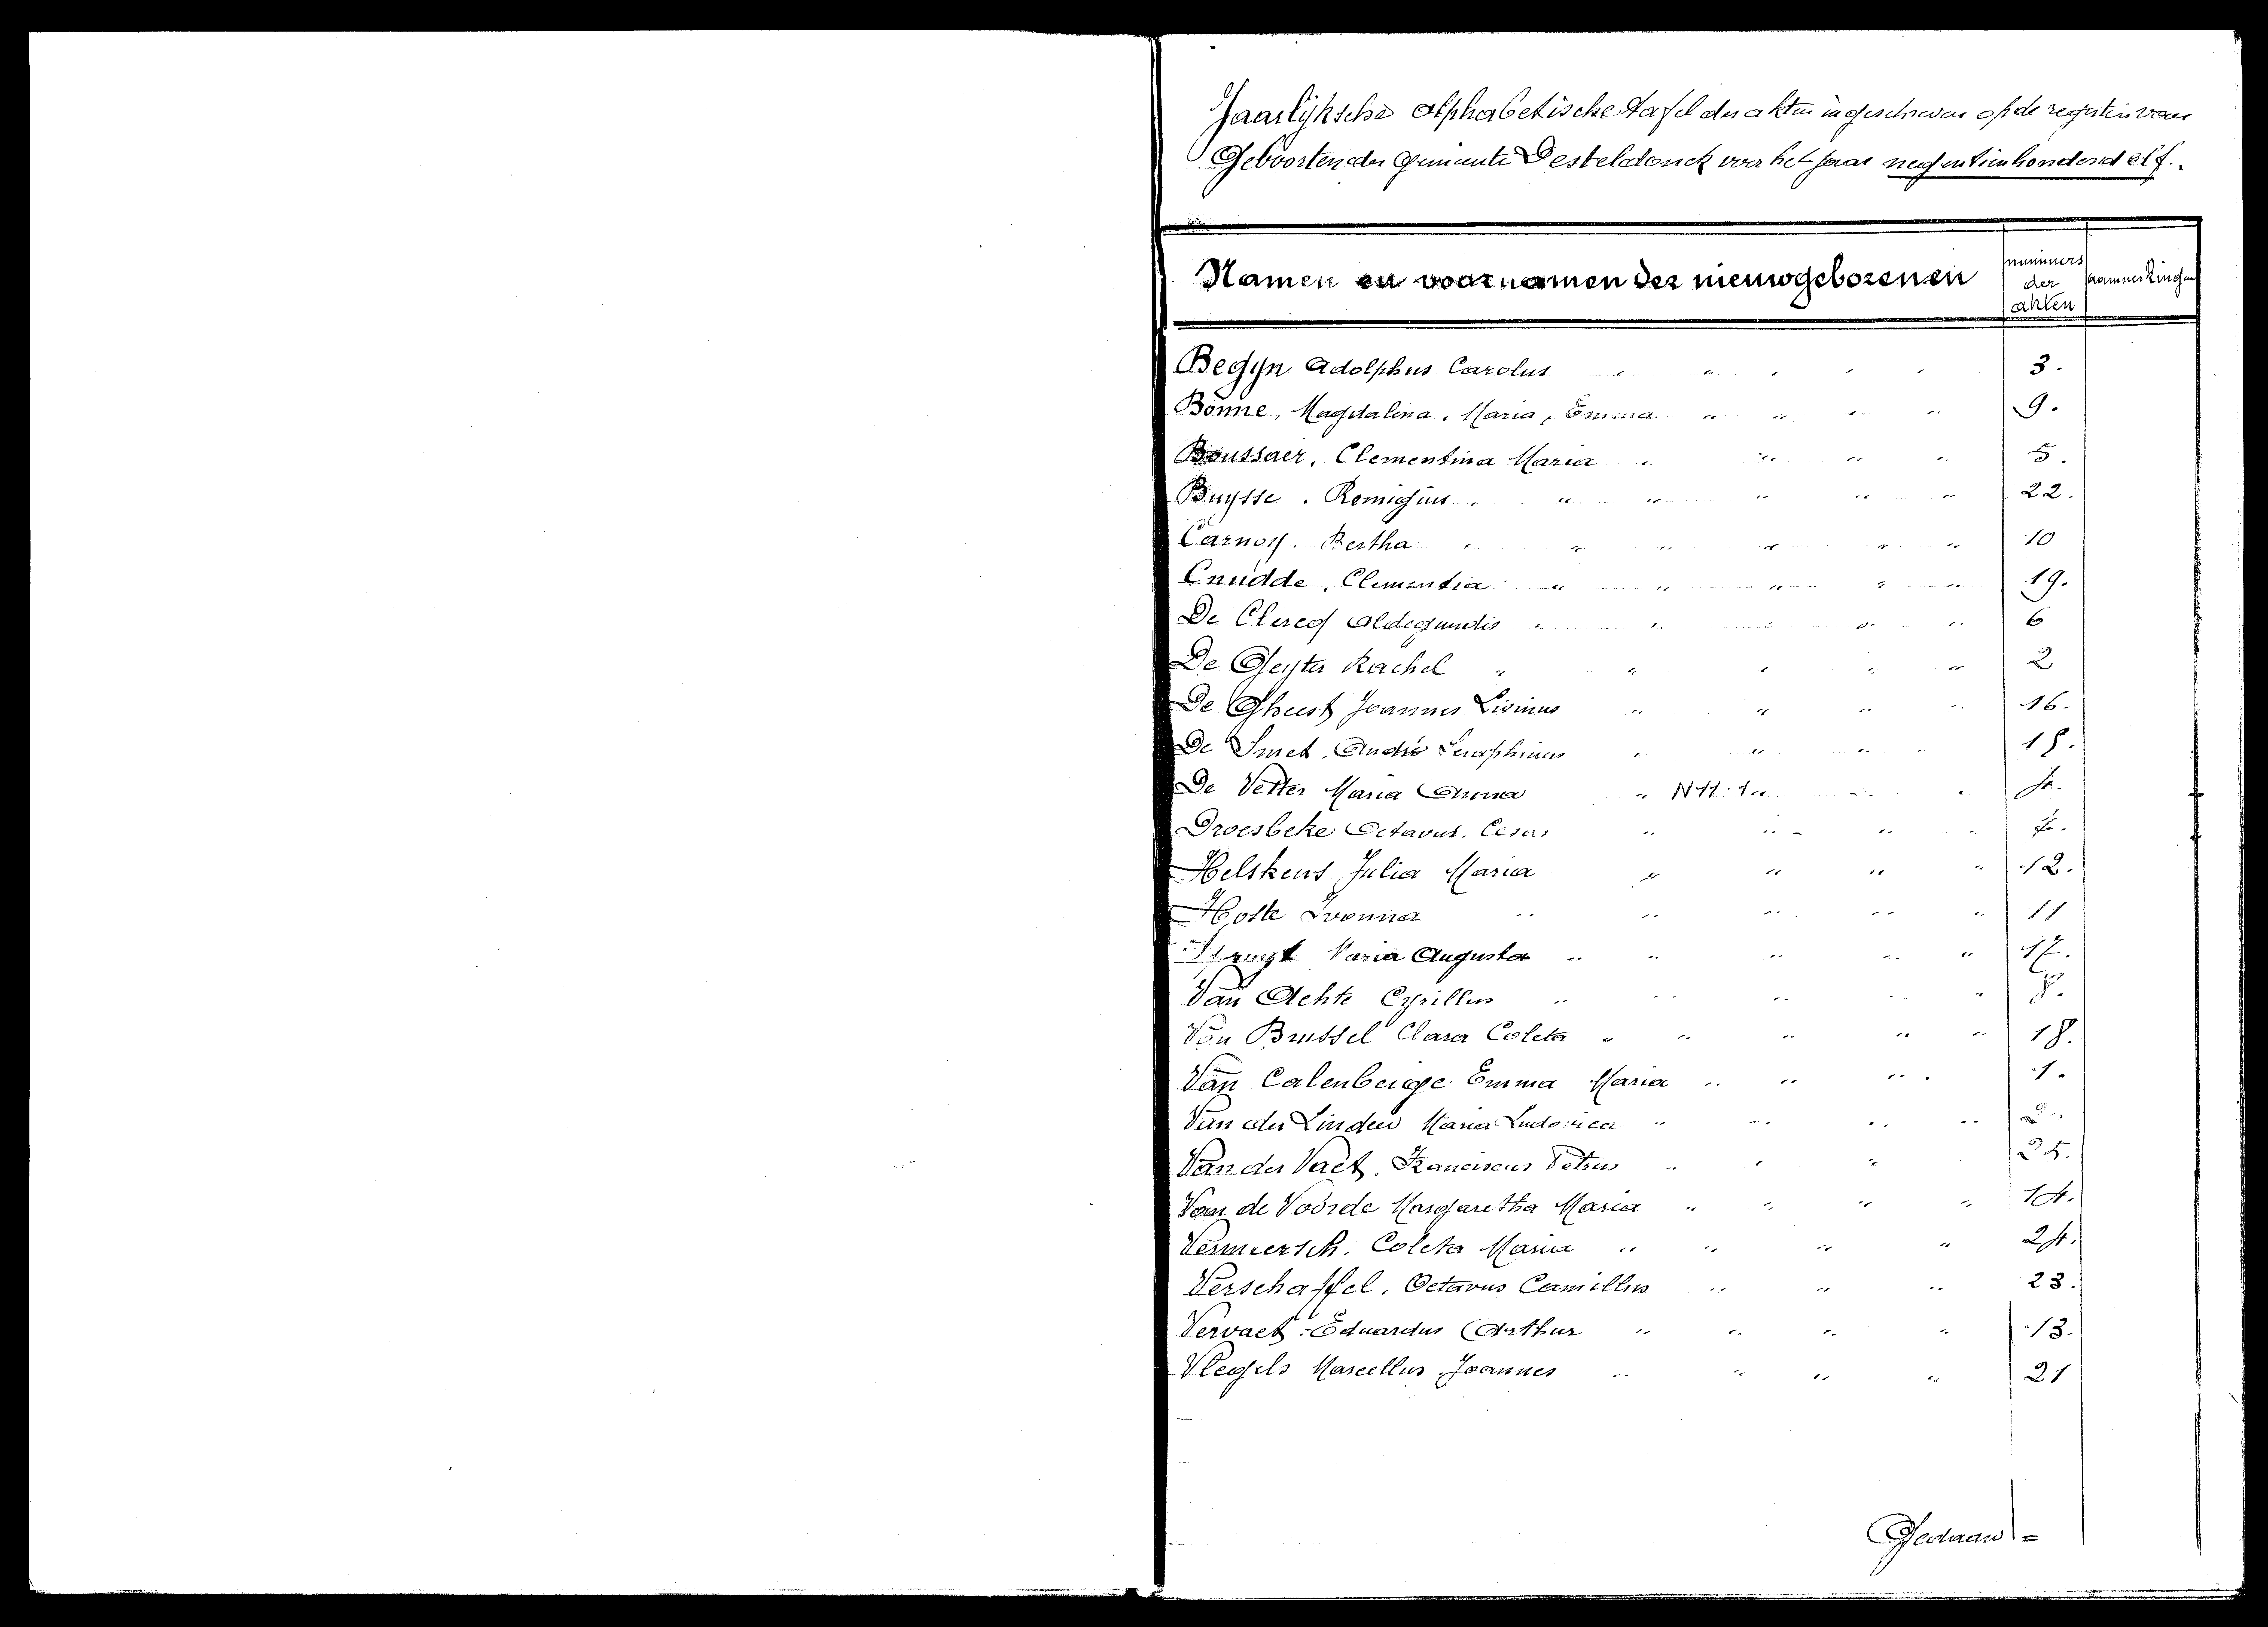 Jaarlijksche Alphabetische Tafel der akten ingeschreven op de registers van
Geboorten der Gemeente Desteldonck voor het jaar negentienhonderd elf.
Namen en voornamen der nieuwgeborenen nummers der akten aanmerkingen
Begyn Adolphus Carolus 3.
Bonne, Magdalena, Maria, Emma 9.
Boussaer, Clementina Maria 5.
Buysse. Remigius. 22.
Carnoy. Bertha 10
Cnudde, Clementia 19.
De Clercq Aldegundis 6
De Geyter Rachel 2
De Gheest Joannes Livinus 16.
De Smet. André Seraphinus
De Vetter Maria Emma " N 11. 1 " 4.
Droesbeke Octavus. Cesar 7.
Helskens Julia Maria 12.
Hoste Ivonna 11
Maria Augusta 17.
Van Achte Cyrillus 8.
Van Brussel Clara Coleta 18.
Van Calenberge Emma Maria 1.
Van der Linden Maria Ludovica
Van der Vaet. Franciscus Petrus 25.
Van de Voorde Margaretha Maria 14.
Vermeersch. Coleta Maria 24.
Verschaffel. Octavus Camillus 23.
Vervaet. Eduardus Arthur 13.
Vlegels Marcellus Joannes 21
Gedaan =